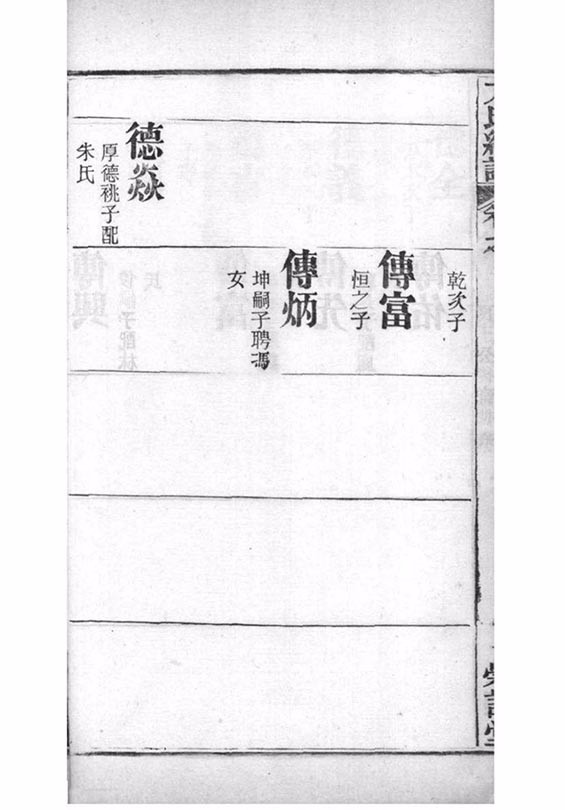 乾次子
傳富
恒之子
傳炳
坤嗣子聘馮
女
德焱
厚德祧子配
朱氏